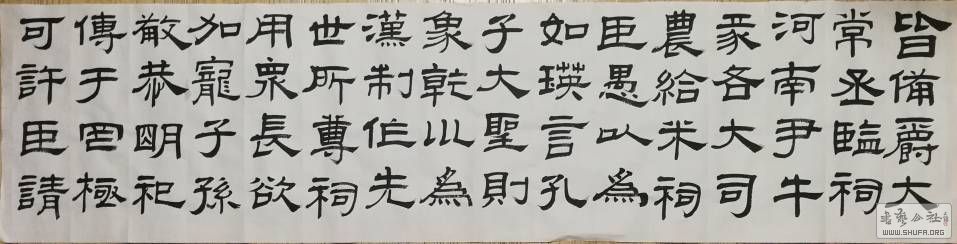 皆備爵大
常丞臨祠
河南尹牛
豕各大司
農給米祠
臣愚以為
如瑛言孔
子大聖則
象乾川為
漢制作先
世所尊祠
用眾長欲
加寵子孫
敬恭明祀
傳于罔極
可許臣請
书艺公社
WWW.SHUFA.ORG